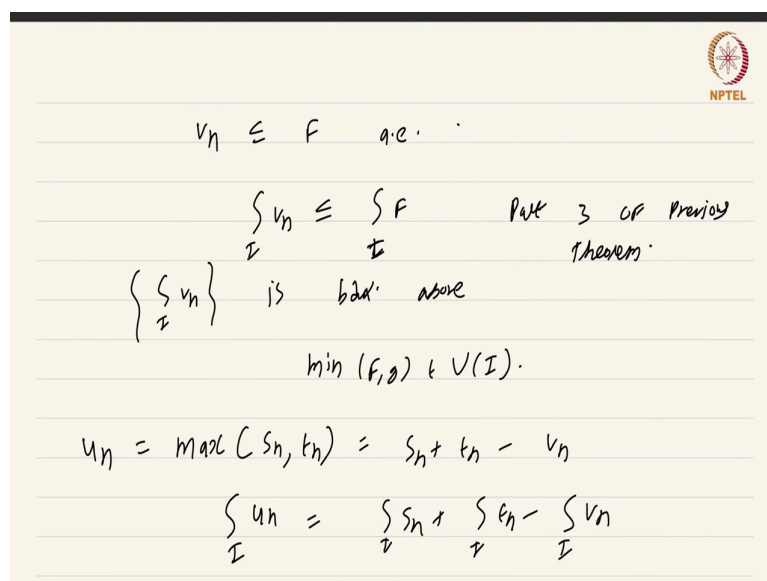 NPTEL
vn ≤ F a.e.
∫_I vn ≤ ∫_I F Part 3 of Previous
Theorem.
{∫_I vn} is bdd. above
min (F, g) ∈ U(I).
un = max (sn, tn) = sn + tn - vn
∫_I un = ∫_I sn + ∫_I tn - ∫_I vn